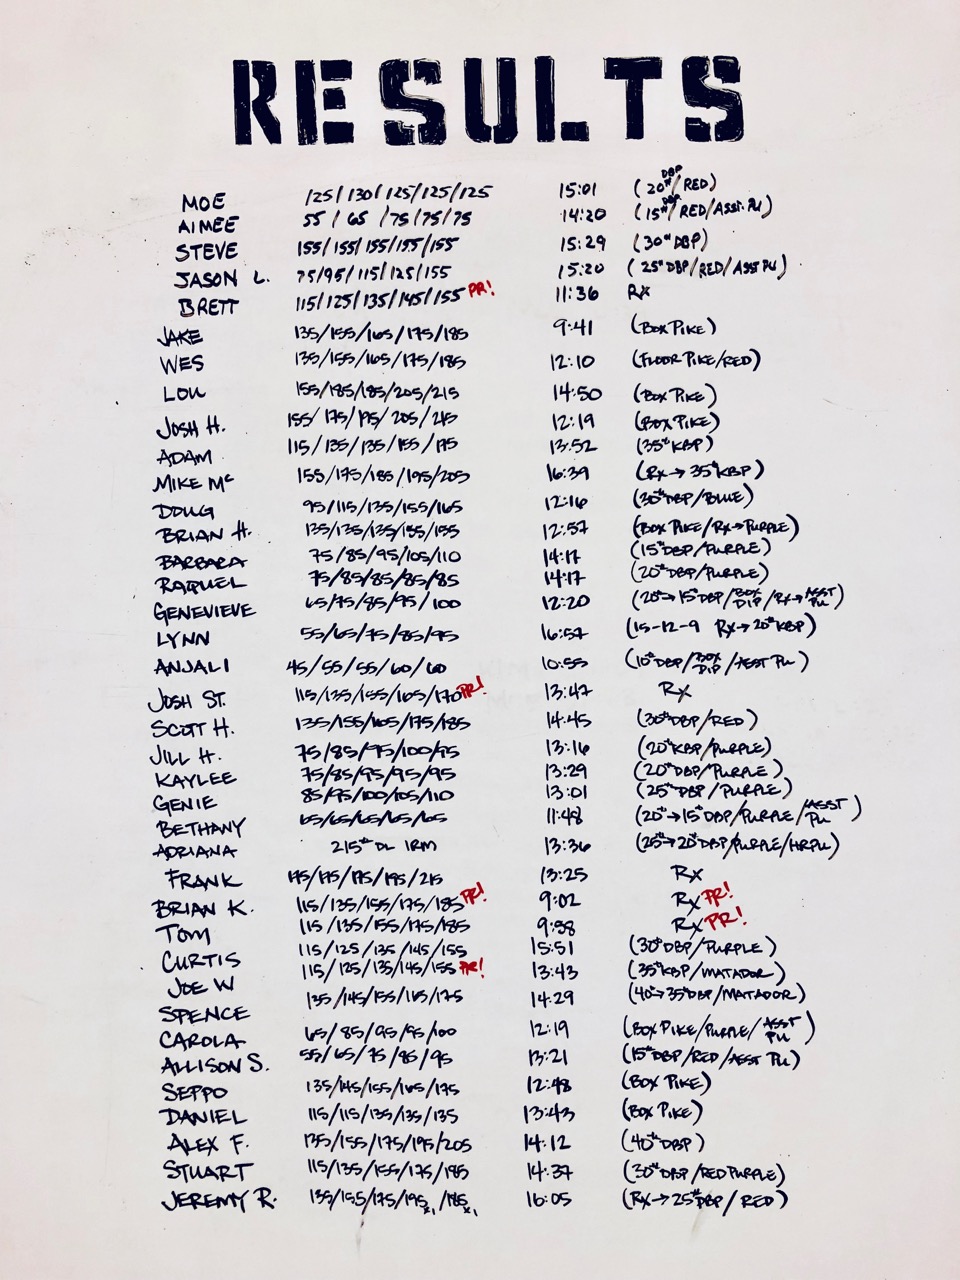 RESULTS
MOE 125/130/125/125/125 15:01 (20# DBP/RED)
AIMEE 55/65/75/75/75 14:20 (15# DBP/RED/ASST. PU)
STEVE 155/155/155/155/155 15:29 (30# DBP)
JASON L. 75/95/115/125/155 15:20 (25# DBP/RED/ASST PU)
BRETT 115/125/135/145/155 PR! 11:36 RX
JAKE 135/155/165/175/185 9:41 (BOX PIKE)
WES 135/155/165/175/185 12:10 (FLOOR PIKE/RED)
LOU 155/185/185/205/215 14:50 (BOX PIKE)
JOSH H. 155/175/195/205/215 12:19 (BOX PIKE)
ADAM 115/135/135/155/175 13:52 (35# KBP)
MIKE Mc 155/175/185/195/205 16:39 (RX→35# KBP)
DOUG 95/115/135/155/165 12:16 (30# DBP/BLUE)
BRIAN H. 135/135/135/155/155 12:57 (BOX PIKE/RX→PURPLE)
BARBARA 75/85/95/105/110 14:17 (15# DBP/PURPLE)
RAQUEL 75/85/85/85/85 14:17 (20# DBP/PURPLE)
GENEVIEVE 65/75/85/95/100 12:20 (20#→15# DBP/BOX DIP/RX→ASST PU)
LYNN 55/65/75/85/95 16:57 (15-12-9 RX→20# KBP)
ANJALI 45/55/55/60/60 10:55 (10# DBP/BOX DIP/ASST PU)
JOSH ST. 115/135/155/165/170 PR! 13:47 RX
SCOTT H. 135/155/165/175/185 14:45 (30# DBP/RED)
JILL H. 75/85/95/100/95 13:16 (20# KBP/PURPLE)
KAYLEE 75/85/95/95/95 13:29 (20# DBP/PURPLE)
GENIE 85/95/100/105/110 13:01 (25# DBP/PURPLE)
BETHANY 65/65/65/65/65 11:48 (20#→15# DBP/PURPLE/ASST PU)
ADRIANA 215# DL 1RM 13:36 (25#→20# DBP/PURPLE/HRPU)
FRANK 175/175/195/215 13:25 RX
BRIAN K. 115/135/155/175/185 PR! 9:02 RX PR!
TOM 115/135/155/175/185 9:38 RX PR!
CURTIS 115/125/135/145/155 15:51 (30# DBP/PURPLE)
JOE W 115/125/135/145/155 PR! 13:43 (35# KBP/MATADOR)
SPENCE 135/145/155/165/175 14:29 (40→35# DBP/MATADOR)
CAROLA 65/85/95/95/100 12:19 (BOX PIKE/PURPLE/ASST PU)
ALLISON S. 55/65/75/85/95 13:21 (15# DBP/RED/ASST PU)
SEPPO 135/145/155/165/175 12:48 (BOX PIKE)
DANIEL 115/115/135/135/135 13:43 (BOX PIKE)
ALEX F. 135/155/175/195/205 14:12 (40# DBP)
STUART 115/135/155/175/185 14:37 (30# DBP/RED PURPLE)
JEREMY R. 135/155/175/195 x1/185 x1 16:05 (RX→25# DBP/RED)